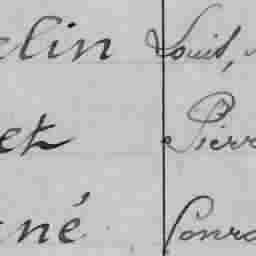 elin Louis,
et Pierr
né Conra